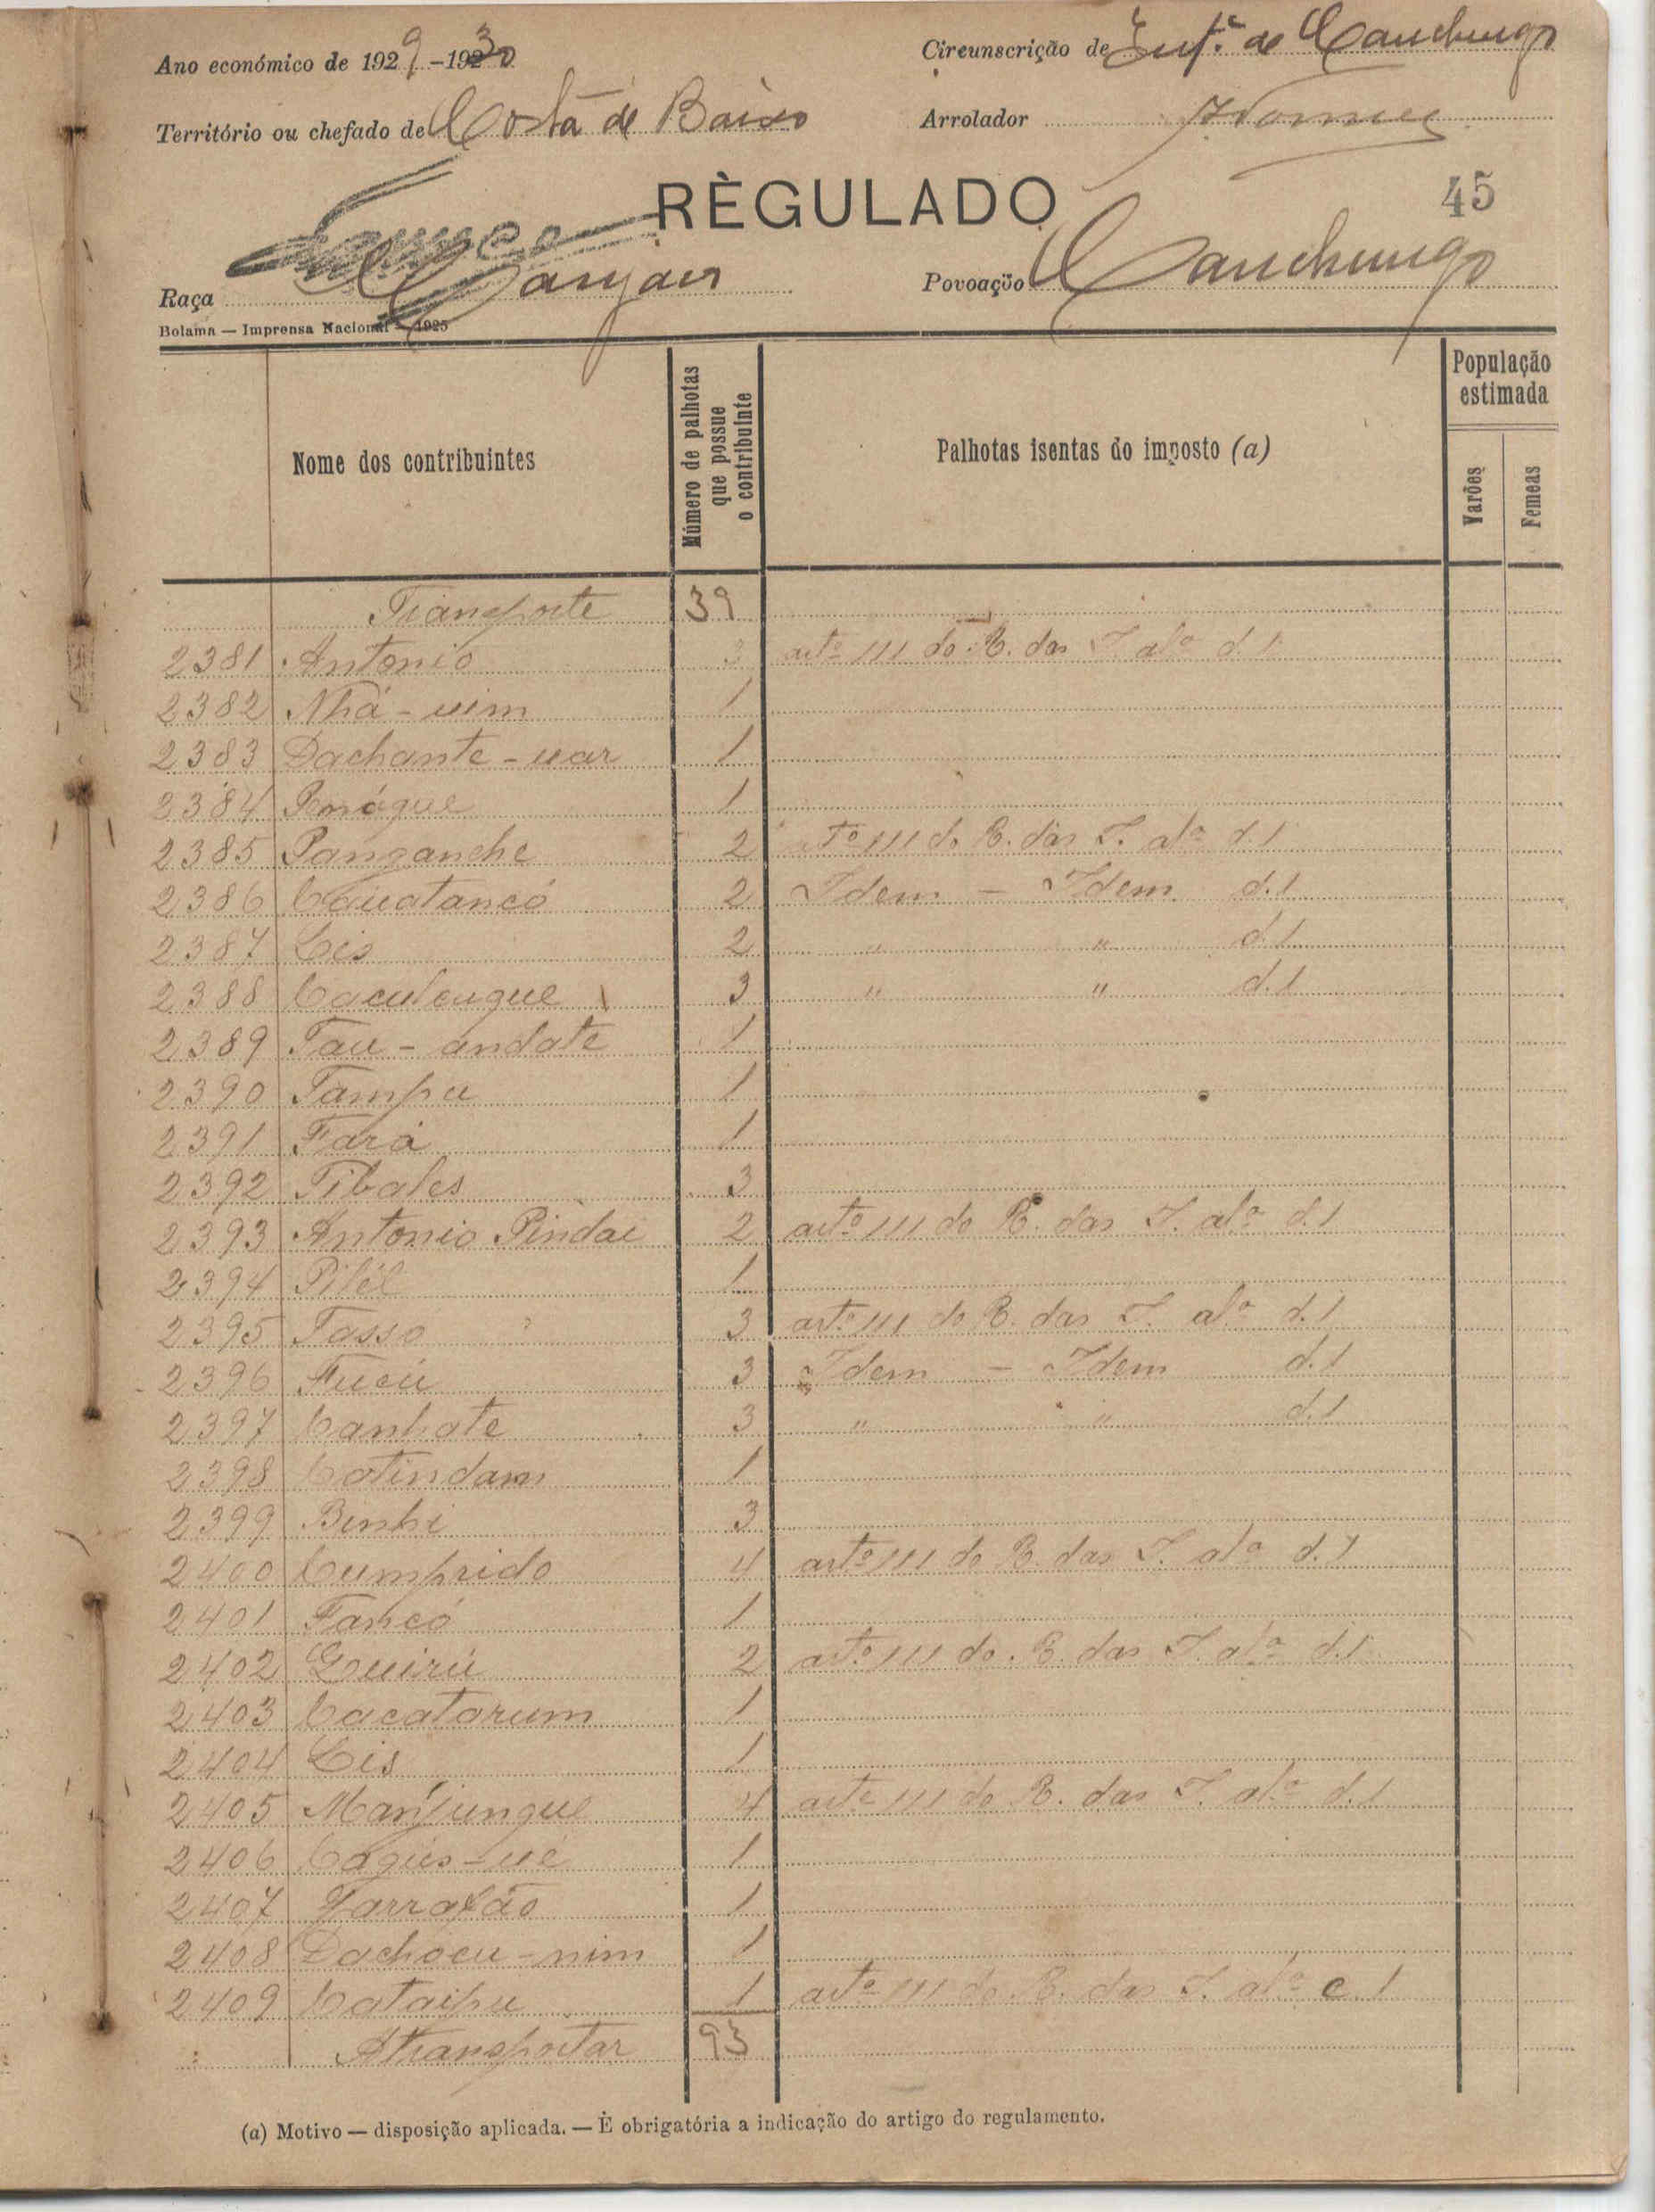 Ano económico de 1929-1930
Circunscrição de de Canchungo
Território ou chefado de Costa de Baixo
Arrolador
RÈGULADO
45
Raça
Povoação Canchungo
Bolama — Imprensa Nacional — 1925
Nome dos contribuintes
Número de palhotas que possue o contribuinte
Palhotas isentas do imposto (a)
População estimada
Varões
Femeas
Transporte 39
2381 Antonio 3 artº 111 do R. das I. alª d. 1
2382 Nhá-uim 1
2383 Dachante-uar 1
2384 Penógue 1
2385 Panganche 2 artº 111 do R. das I. alª d. 1
2386 Cauatancó 2 Idem - Idem d. 1
2387 Lis 2 " " d. 1
2388 Caculengue 3 " " d. 1
2389 Tau-andate 1
2390 Tampu 1
2391 Fará 1
2392 Tibales 3
2393 Antonio Pindai 2 artº 111 do R. das I. alª d. 1
2394 Pilél 1
2395 Tasso 3 artº 111 do R. das I. alª d. 1
2396 Fucú 3 Idem - Idem d. 1
2397 Canhate 3 " " d. 1
2398 Catindam 1
2399 Binhi 3
2400 Cumprido 4 artº 111 do R. das I. alª d. 1
2401 Fancó 1
2402 Quirú 2 artº 111 do R. das I. alª d. 1
2403 Cacatarum 1
2404 Lis 1
2405 Manjungue 4 artº 111 do R. das I. alª d. 1
2406 Cagús-ué 1
2407 Garrafão 1
2408 Dachocu-nim 1
2409 Cataipu 1 artº 111 do R. das I. alª c. 1
A transportar 93
(a) Motivo — disposição aplicada. — É obrigatória a indicação do artigo do regulamento.